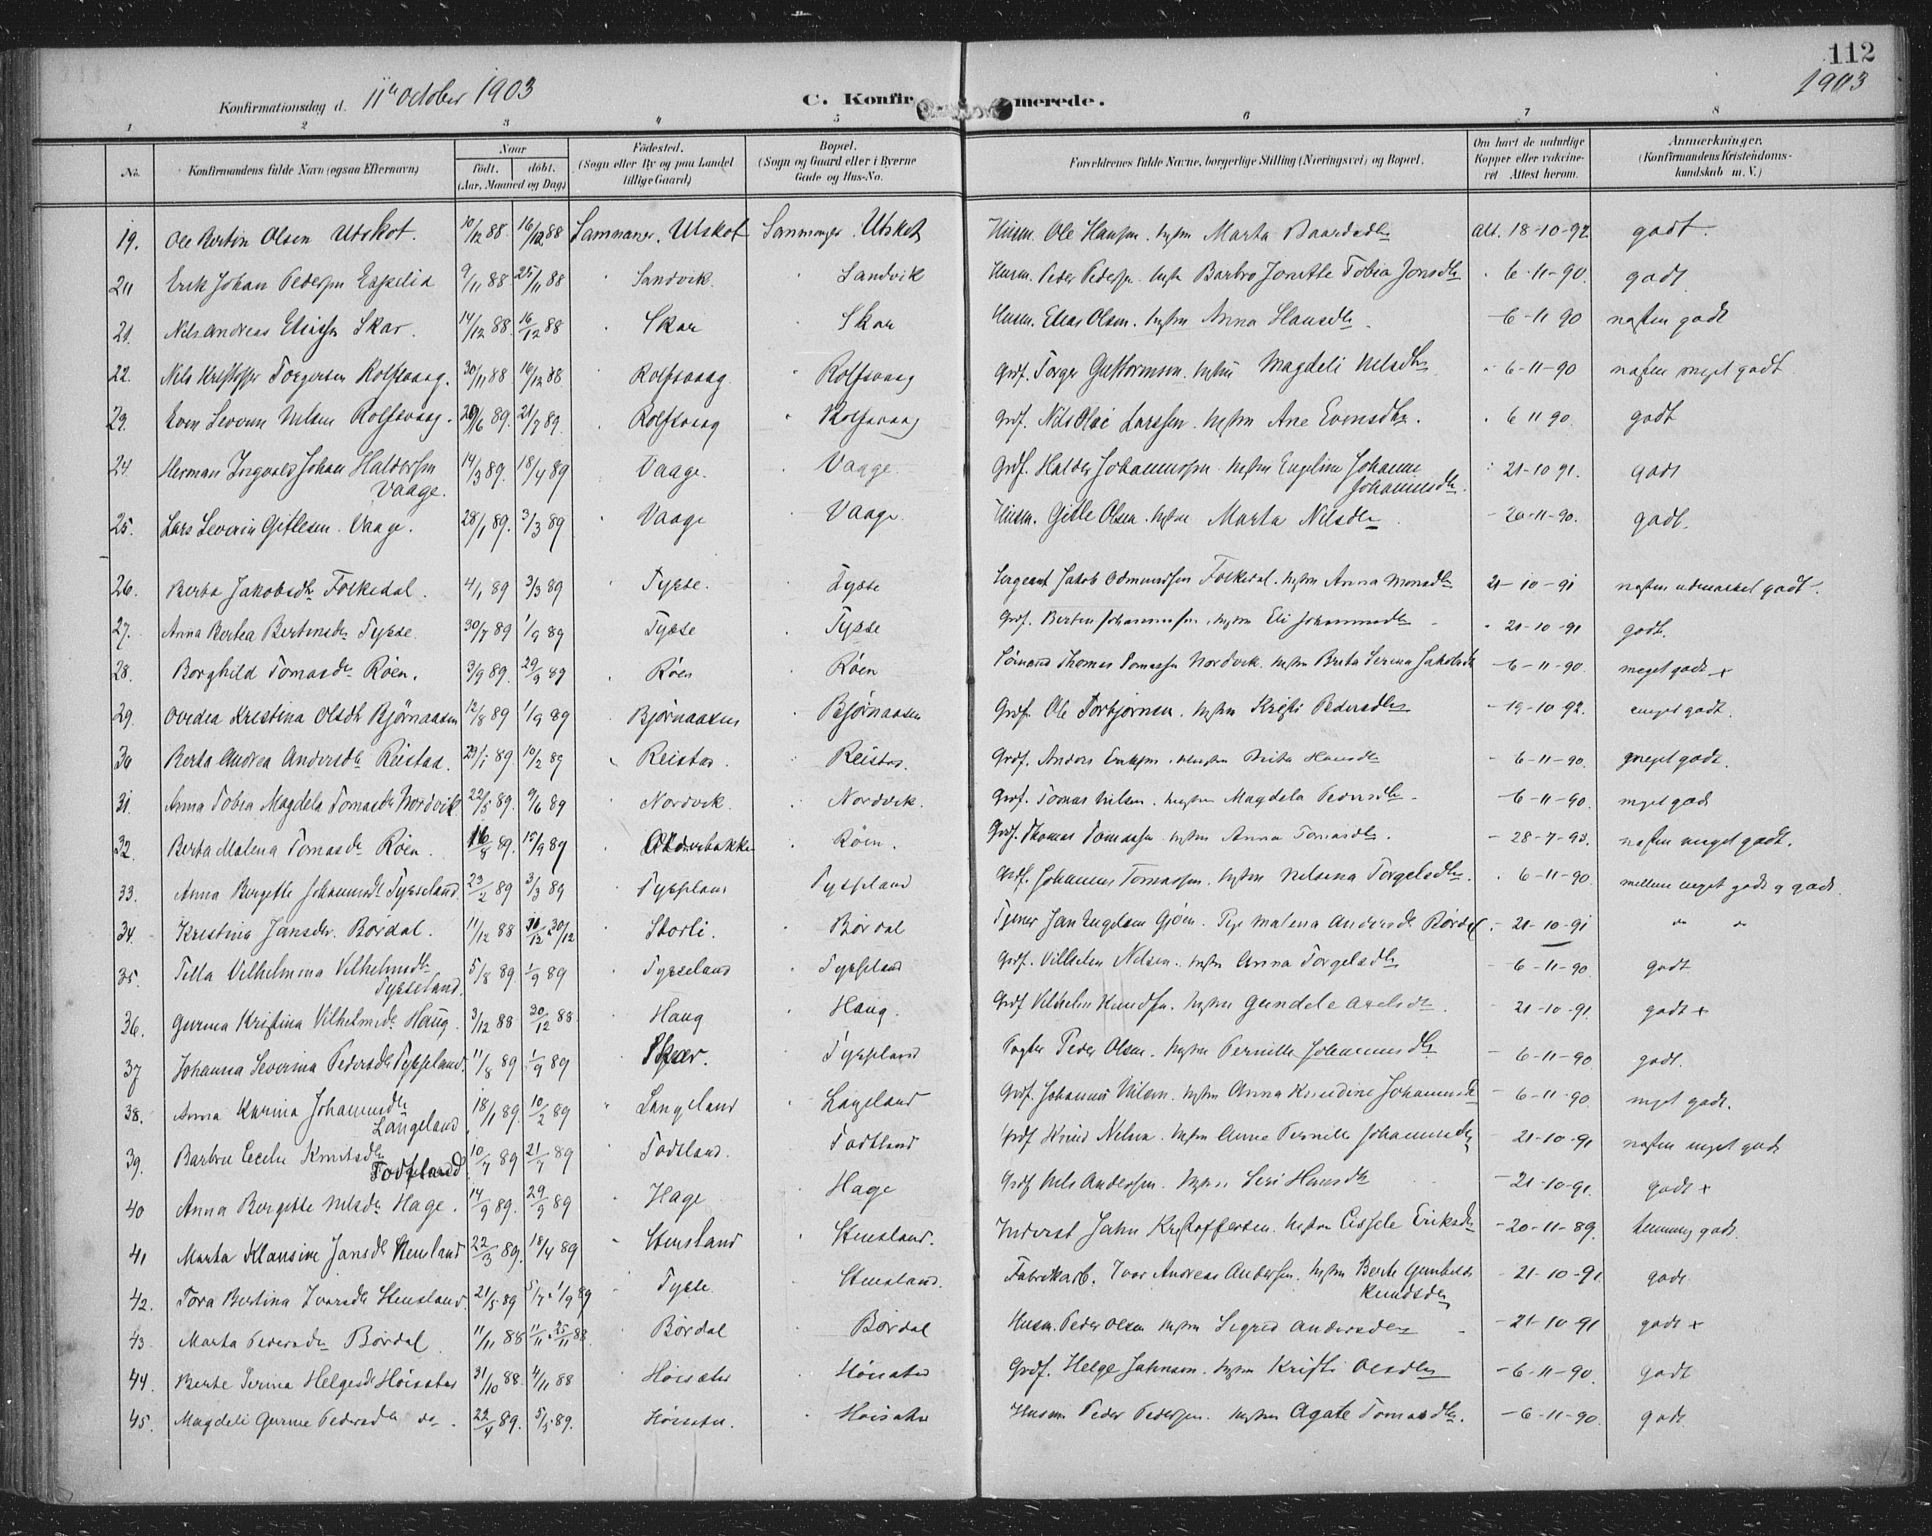 112
1903
Konfirmationsdag d. 11te October 1903
C. Konfirmerede.
1 2 3 4 5 6 7 8
No. Konfirmandens fulde Navn (ogsaa Efternavn) Naar født. døbt. (Aar, Maaned og Dag) Fødested. (Sogn eller By og paa Landet tillige Gaard) Bopæl. (Sogn og Gaard eller i Byerne Gade og Hus-No. Forældrenes fulde Navne, borgerlige Stilling (Næringsvei) og Bopæl. Om havt de naturlige Kopper eller vaccineret Attest herom. Anmærkninger. (Konfirmandens Kristendomskundskab m. V.)
19. Ole Bertin Olsen Utskot. 10/12 88. 16/12 88 Samnanger. Utskot Samnanger. Utskot Husm. Ole Hansen. Hustru Marta Baardsdtr att. 18-10-92 godt.
20 Erik Johan Pedersen Espelid 9/11 88 25/11 88 Sandvik. Sandvik Husm. Peder Pedersen Barbro Jonette Tobia Jonsdtr 6-11-90. godt
21. Nils Andreas Eliasen Skar. 14/12 88. 16/12 88 Skar Skar Husm. Elias Olsen. Hustru Anna Hansdtr. -6-11 90 næsten godt
22. Nils Kristoffer Torgersen Rolfsvaag. 30/11 88 16/12 88 Rolfsvaag. Rolfsvaag Grdf. Torger Guttormsen. Hustru Magdeli Nilsdtr 6-11-90 næsten meget godt.
23. Even Severin Nilsen Rolfsvaag. 29/6 89. 21/7 89. Rolfsvaag Rolfsvaag Grdf. Nils Olai Larssen. Hustru Ane Evensdtr. 6 11 90. godt
24 Herman Ingvald Johan Haldorsen Vaage. 14/3 89. 18/4 89 Vaage. Vaage. Grdf. Haldor Johannessen. Hustru Engeline Johanne Johannesdtr. 21-10 91. godt
25. Lars Severin Gitlesen. Vaage. 28/1 89. 3/3 89 Vaage Vaage. Husm. Gitle Olsen. Hustru Marta Nilsdtr -20-11-90. godt.
26. Berta Jakobsdtr Folkedal. 4/1 89 3/3 89 Tysse. Tysse Sergeant Jakob Odmundsen Folkedal. Hustru Anna Monsdtr 21-10-91 næsten udmærket godt.
27. Anna Bertea Bertinsdtr Tysse. 30/7 89 1/9 89 Tysse Tysse Grdf. Bertin Johannessen. Hustru Eli Johannesdtr 21-10-91 godt.
28. Borghild Tomasdtr Røen. 3/9 89. 29/9 89 Røen Røen Sømand Thomas Tomassen Nordvik. Hustru Brita Serina Jakobsdtr -6-11-90. meget godt x
29. Ovedia Kristina Olsdtr Bjørnaasen 12/8 89 1/9 89 Bjørnaasen Bjørnaasen Grdf. Ole Torbjørnsen. Hustru Kristi Pedersdtr -19-10-92. meget godt.
30 Berta Andrea Andersdtr Reistad. 29/1 89 10/2 89 Reistad. Reistad. Grdf. Anders Eriksen. Hustru Brita Hansdtr -6-11-90. meget godt.
31. Anna Tobia Magdela Tomasdtr Nordvik 22/5 89. 9/6 89 Nordvik. Nordvik. Grdf. Tomas Nilsen. Hustru Magdela Pedersdtr. -6-11-90. meget godt
32. Berta Malena Tomasdtr Røen. 16/8 89. 15/9 89 Røen. Grdf. Thomas Tomassen Hustru Anna Tomasdtr. -28-7-93. næsten meget godt.
33. Anna Bergitte Johannesdtr Tysseland. 23/2 89 3/3 89 Tysseland Tysseland Grdf. Johannes Tomassen. Hustru Nilsina Torgelsdtr. 6-11-90. mellem meget godt og godt.
34. Kristina Jansdtr. Børdal. 11/12 88 30/12 Storli. Børdal Tjener Jan Engelsen Gjøen. Pige Malena Andersdtr Børdal 21-10-91 " "
35. Tilla Vilhelmina Vilhelmsdtr Tysseland. 5/8 89. 1/9 89 Tysseland Tysseland Grdf. Vilhelm Nilsen. Hustru Anna Torgelsdtr -6-11-90 godt
36. Gurina Kristina Vilhelmsdtr Haug. 3/12 88 30/12 88. Haug Haug. Grdf Vilhelm Knudsen. Hustru Gundele Axelsdtr. 21-10-91. godt x
37 Johanna Severina Pedersdtr Tysseland. 11/8 89 1/9 89 Tysseland Peder Olsen. Hustru Pernille Johannesdtr -6-11-90 godt.
38. Anna Karina Johannesdtr Langeland 18/1 89. 10/2 89 Langeland Langeland Grdf. Johannes Hustru Anna Knudine Johannesdtr -6-11-90. meget godt.
39. Barbro Cecilie Knutsdtr Todtland 10/7 89 21/7 89 Todtland. Todtland Grdf Knud Nilsen. Hustru Anne Pernille Johannesdtr -21-10-91 næsten meget godt
40 Anna Bergitte Nilsdtr Hage. 14/9 89. 29/9 89 Hage Hage Grdf Nils Andersen. Hustru Siri Hansdtr -21-10-91. godt x
41 Marta Klausine Jansdtr Stensland 22/3 89. 18/4 89 Stensland Stensland. Inderst Jahn Kristoffersen. Hustru Cissele Eriksdtr -20-11-89. temmelig godt.
42. Tora Bertina Ivarsdtr Stensland 21/5 89 5/7. 1/9 89 Tysse. Stensland. Fabrikarb. Ivar Andreas Andersen. Hustru Berte Gunhilde Knudsdtr -21-10-91 godt
43 Marta Pedersdtr Børdal 11/11 88 11/11. 25/11 88 Børdal Børdal Husm. Peder Olsen Hustru Sigrid Andersdtr -21-10-91 godt x
44. Berte Serina Helgesdtr Høisæter 31/10 88. 4/11 88 Høisæter Høisæter Grdf. Helge Jahnsen. Hustru Kristi Olsdtr -6-11-90. godt
45. Magdeli Gurine Pedersdtr do. 22/4 89. 5/5 89. Høisæter. Høisæter Husm Peder Pedersen. Hustru Agate Tomasdtr. -6-11-90. godt